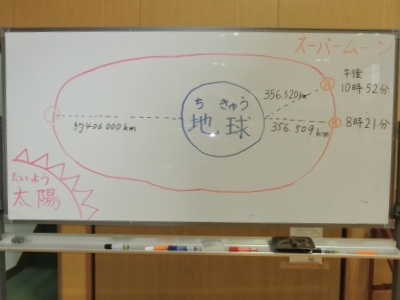 スーパームーン
午後
10時52分
356.520km
月
ち きゅう
地球
約406000km
356.509km
月
8時21分
たいよう
太陽